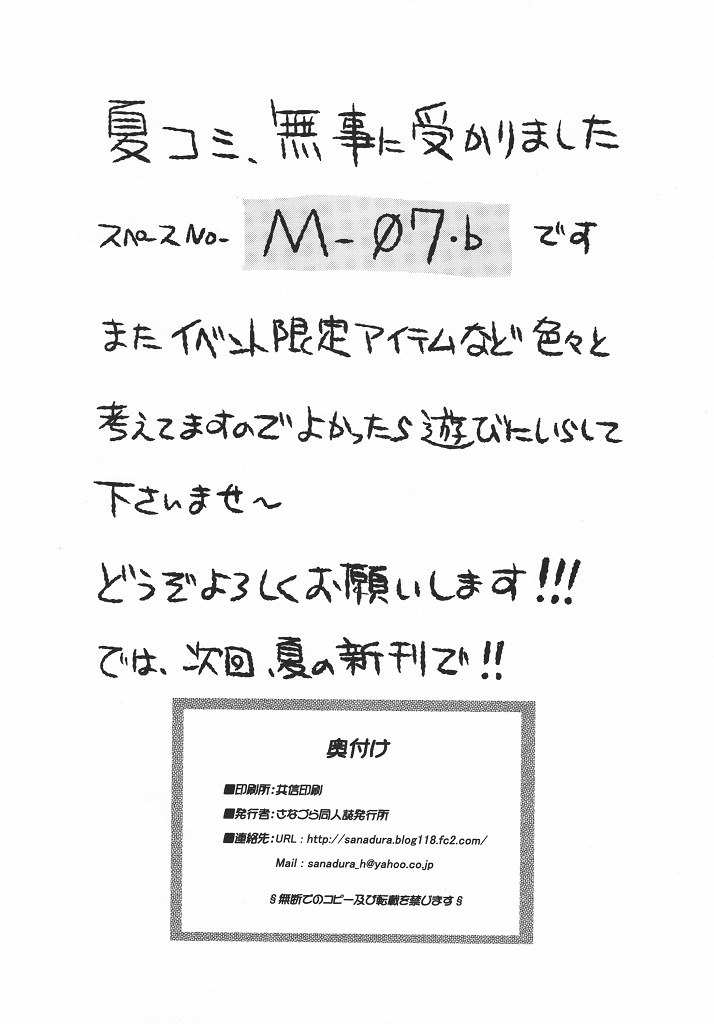 夏コミ、無事に受かりました
スペースNo- M-07・b です
また イベント限定アイテムなど色々と
考えてますのでよかったら遊びにいらして
下さいませ～
どうぞよろしくお願いします!!!
では、次回、夏の新刊で!!
奥付け
■印刷所：共信印刷
■発行者：さなづら同人誌発行所
■連絡先：URL : http://sanadura.blog118.fc2.com/
Mail : sanadura_h@yahoo.co.jp
§無断でのコピー及び転載を禁じます§